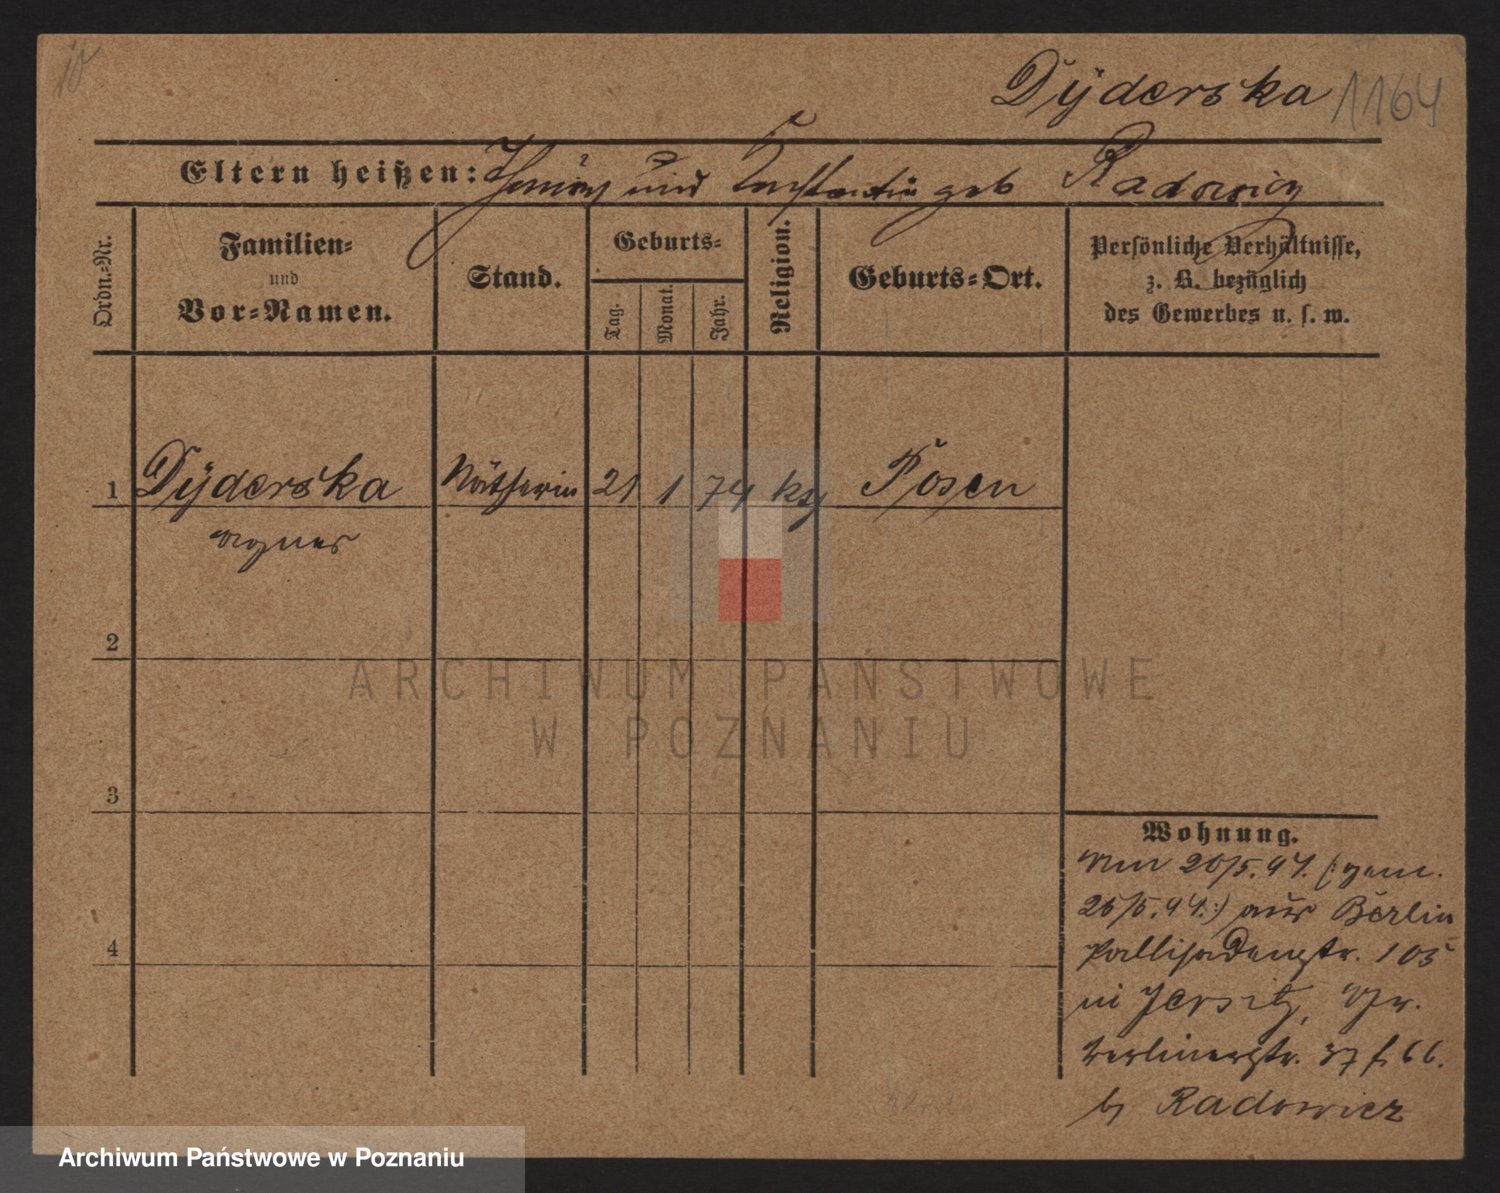 Dÿderska 1164
Eltern heißen: und Constantin geb Radowicz
Ordn.-Nr.
Familien-
und
Vor-Namen.
Stand.
Geburts-
Tag.
Monat.
Jahr.
Religion.
Geburts-Ort.
Persönliche Verhältnisse,
z. B. bezüglich
des Gewerbes u. s. w.
1 Dÿderska Nätherin 21 1 74 kth Posen
Agnes
2
3
4
Wohnung.
20/5. 94. (gem.
26/5. 94.) aus Berlin
Pallisadenstr. 105
in Jersitz,
Berlinerstr. 37 f. 66.
b Radowicz
ARCHIWUM PAŃSTWOWE
W POZNANIU
Archiwum Państwowe w Poznaniu